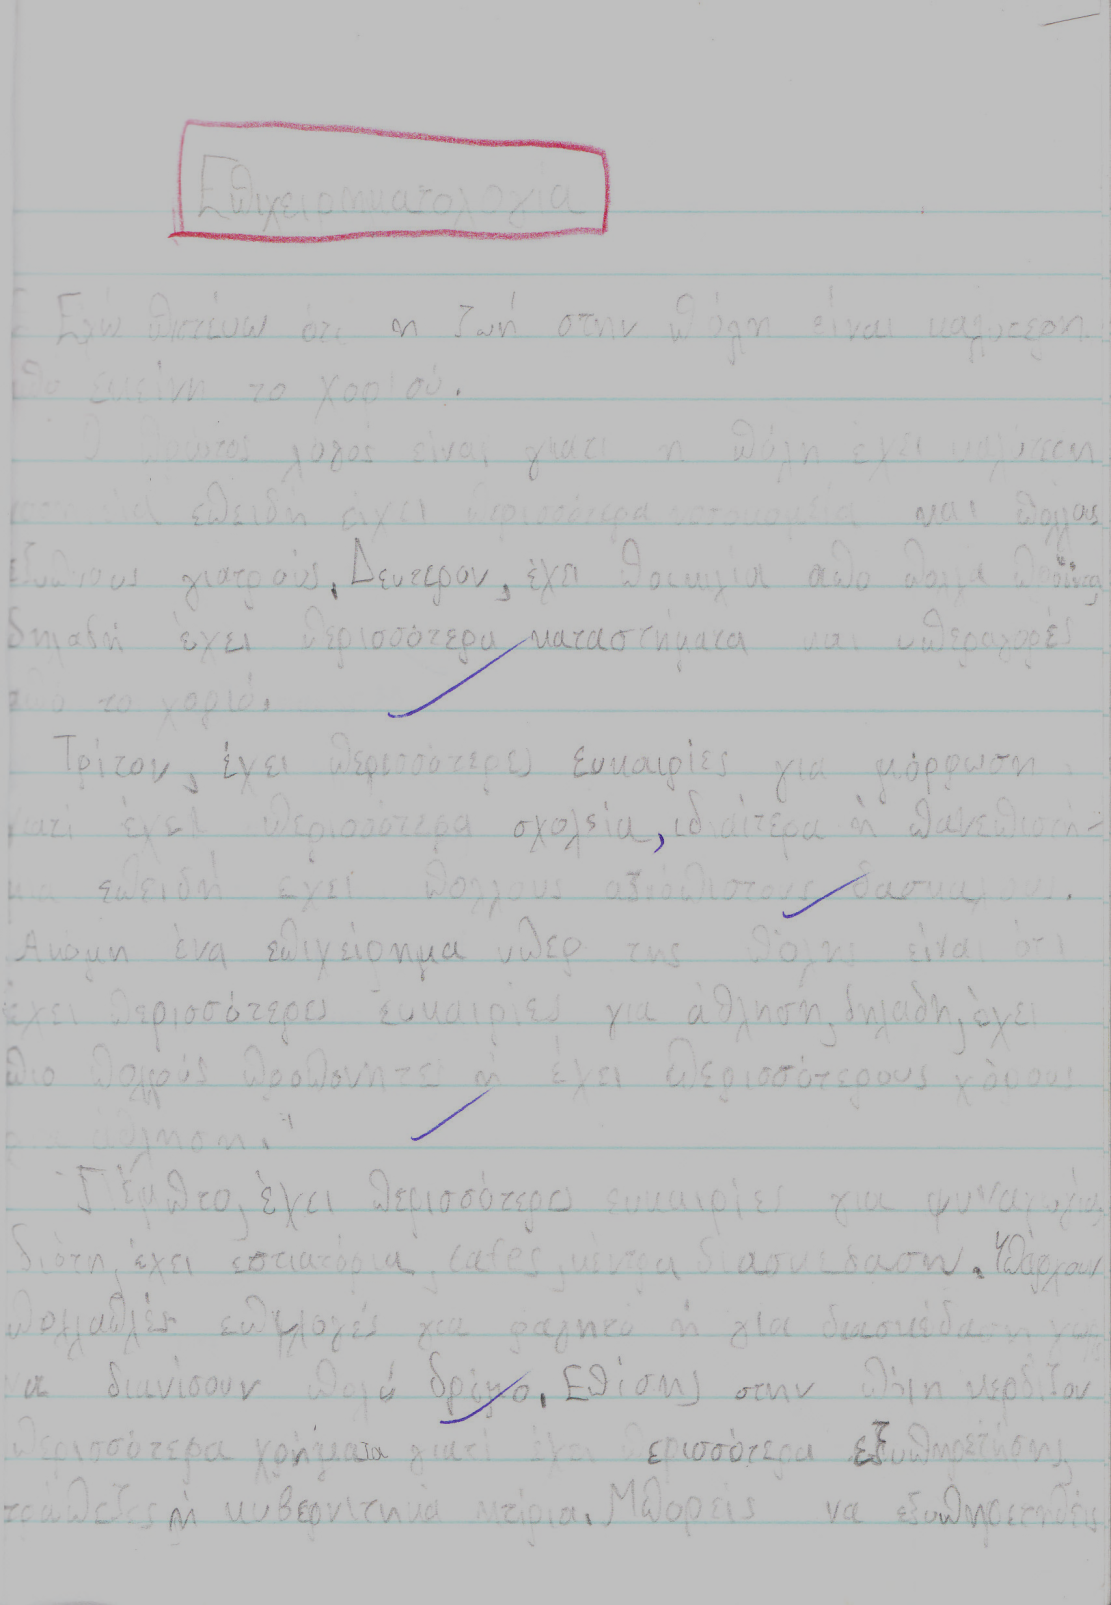 Επιχειρηματολογία
Εγώ πιστέυω ότι η ζωή στην πόλη είναι καλύτερη
από εκείνη το χοριού.
Ο πρώτος λόγος είναι γιατι η πόλη έχει καλύτερη
επειδή έχει περισσότερα νοσοκομεία και πολλους
έξυπνους γιατρούς. Δευτερον, έχει ποικιλία απο πολλά προϊοντα
δηλαδή έχει περισσότερα καταστήματα και υπεραγορές
απο το χοριό.
Τρίτον, έχει περισσότερες ευκαιρίες για μόρφωση
γιατί έχει περισσότερα σχολεία, ιδιαίτερα ή πανεπιστή-
μια επειδή έχει πολλους αξιόπιστους δασκαλους.
Ακόμη ένα επιχείρημα υπερ της πόλης είναι ότι
έχει περισσότερες ευκαιρίες για άθληση, δηλαδη, έχει
πιο πολλούς προπονητές ή έχει περισσότερους χόρους
για άθληση.
Πέμπτο, έχει περισσότερες ευκαιρίες για ψυχαγωγία,
διότη, έχει εστιατόρια, cafes, κέντρα διασκεδασης. Υπάρχουν
πολλαπλές επιλογές για φαγητό ή για διασκέδαση χωρίς
να διανίσουν πολύ δρόμο. Επίσης στην πόλη κερδίζουν
περισσότερα χρήματα γιατί έχει περισσότερα εξυπηρετήσης
τράπεζες ή κυβερνιτηκά κτίρια. Μπορείς να εξυπηρετηθείς